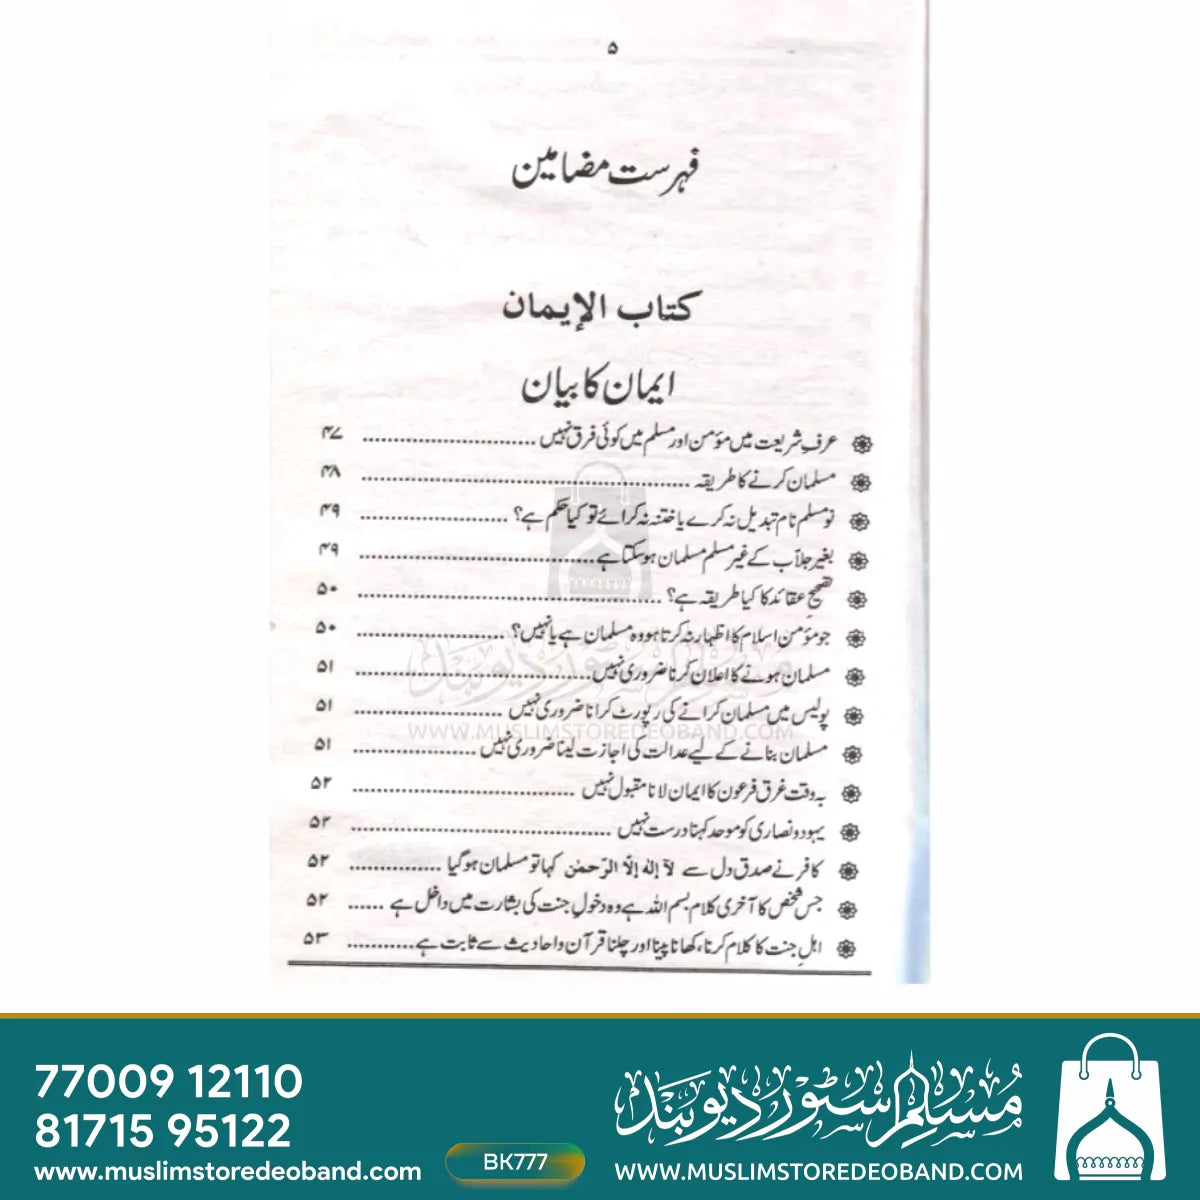 ۵
فہرست مضامین
کتاب الإیمان
ایمان کا بیان
عرفِ شریعت میں مؤمن اور مسلم میں کوئی فرق نہیں ............................ ۴۷
مسلمان کرنے کا طریقہ ..................................................... ۴۸
نو مسلم نام تبدیل نہ کرے یا ختنہ نہ کرائے تو کیا حکم ہے؟ ........................ ۴۹
بغیر جلّاب کے غیر مسلم مسلمان ہو سکتا ہے ...................................... ۴۹
تصحیح عقائد کا کیا طریقہ ہے؟ ................................................. ۵۰
جو مؤمن اسلام کا اظہار نہ کرتا ہو وہ مسلمان ہے یا نہیں؟ ........................ ۵۰
مسلمان ہونے کا اعلان کرنا ضروری نہیں ...................................... ۵۱
پولیس میں مسلمان کرانے کی رپورٹ کرانا ضروری نہیں ........................ ۵۱
مسلمان بنانے کے لیے عدالت کی اجازت لینا ضروری نہیں .................... ۵۱
بہ وقت غرق فرعون کا ایمان لانا مقبول نہیں .................................... ۵۲
یہود و نصاری کو موحد کہنا درست نہیں .......................................... ۵۲
کافر نے صدق دل سے لآ إلٰه إلاّ الرّحمٰن کہا تو مسلمان ہوگیا ............... ۵۲
جس شخص کا آخری کلام بسم اللہ ہے وہ دخولِ جنت کی بشارت میں داخل ہے ...... ۵۲
اہلِ جنت کا کلام کرنا، کھانا پینا اور چلنا قرآن و احادیث سے ثابت ہے ........... ۵۳
مسلم سٹور دیوبند
WWW.MUSLIMSTOREDEOBAND.COM
77009 12110
81715 95122
www.muslimstoredeoband.com
BK777
مسلم سٹور دیوبند
WWW.MUSLIMSTOREDEOBAND.COM